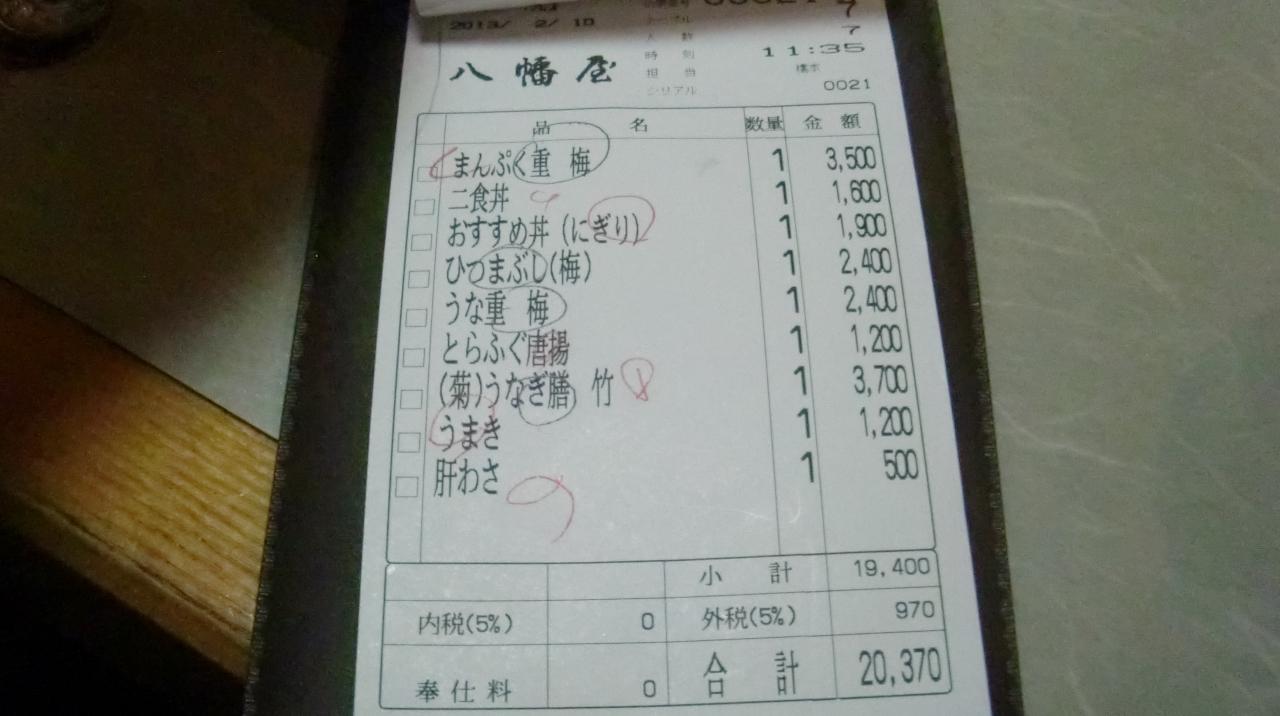 2013/ 2/ 10
テーブル 7
人 数 7
時 刻 11:35
八幡屋
担 当
シリアル 0021
品 名 数量 金 額
まんぷく重 梅 1 3,500
二食丼 1 1,600
おすすめ丼 (にぎり) 1 1,900
ひつまぶし(梅) 1 2,400
うな重 梅 1 2,400
とらふぐ唐揚 1 1,200
(菊)うなぎ膳 竹 1 3,700
うまき 1 1,200
肝わさ 1 500
小 計 19,400
内税(5%) 0 外税(5%) 970
奉仕料 0 合 計 20,370